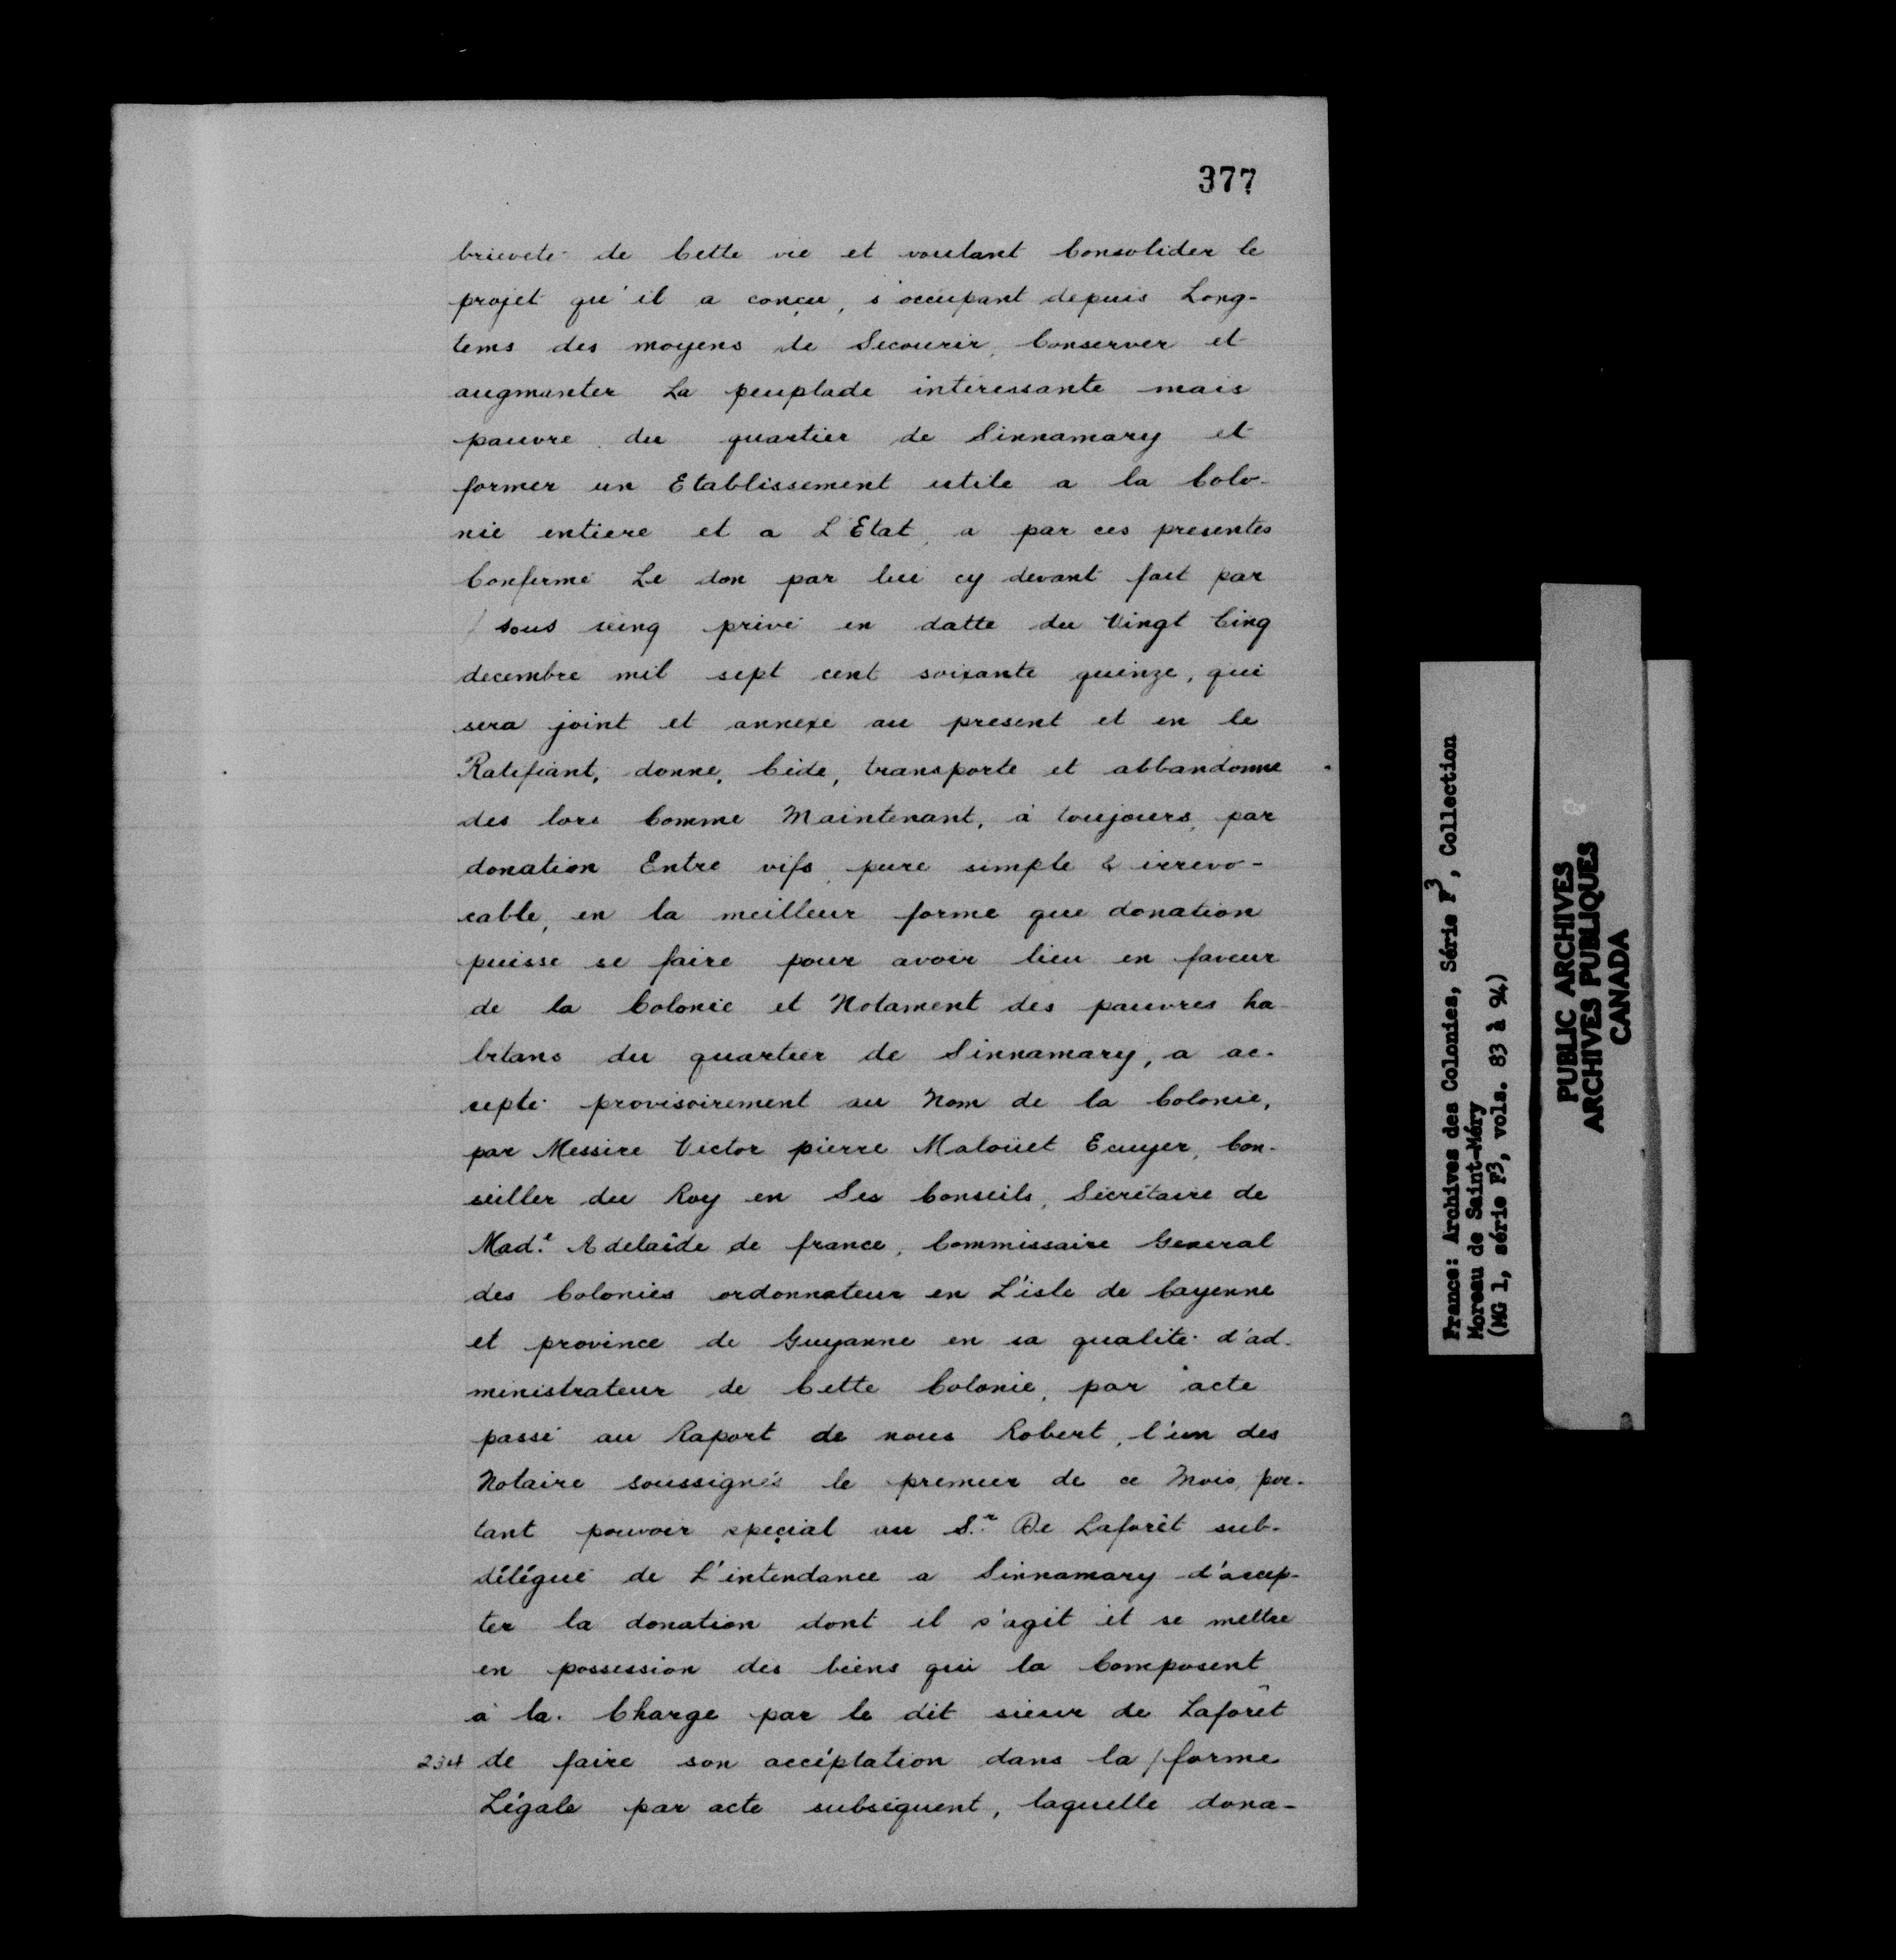 377
brieveté de Cette vie et voulant Consolider le
projet qu'il a conçu, s'occupant depuis Long-
tems des moyens de Secourir, Conserver et
augmanter La peuplade intéressante mais
pauvre du quartier de Sinnamary et
former un Etablissement utile a la Colo-
nie entiere et a L'Etat, a par ces presentes
Confirmé Le don par lui cy devant fait par
/ sous seing privé en datte du Vingt Cinq
decembre mil sept cent soixante quinze, qui
sera joint et annexe au present et en le
Ratifiant, donne, Céde, transporte et abbandonne
des lors Comme Maintenant, à toujours, par
donation Entre vifs, pure simple & irrevo-
cable, en la meilleur forme que donation
puisse se faire pour avoir lieu en faveur
de la Colonie et Notament des pauvres ha-
bitans du quartier de Sinnamary, a ac-
septé provisoirement au Nom de la Colonie,
par Messire Victor pierre Malouet Ecuyer, Con-
seiller du Roy en Ses Conseils, Secrétaire de
Mad.e Adelaïde de france, Commissaire General
des Colonies ordonnateur en L'isle de Cayenne
et province de Guyanne en sa qualité d'ad-
ministrateur de Cette Colonie, par acte
passé au Raport de nous Robert, l'un des
Notaire soussignés le premier de ce Mois, por-
tant pouvoir special au S.r De Laforêt sub-
délégué de L'intendance a Sinnamary d'accep-
ter la donation dont il s'agit et se mettre
en possession des biens qui la Composent
à la Charge par le dit sieur de Laforêt
234 de faire son accéptation dans la / forme
Légale par acte subséquent, laquelle dona-
France: Archives des Colonies, Série F3, Collection
Moreau de Saint-Méry
(MG 1, série F3, vols. 83 à 94)
PUBLIC ARCHIVES
ARCHIVES PUBLIQUES
CANADA